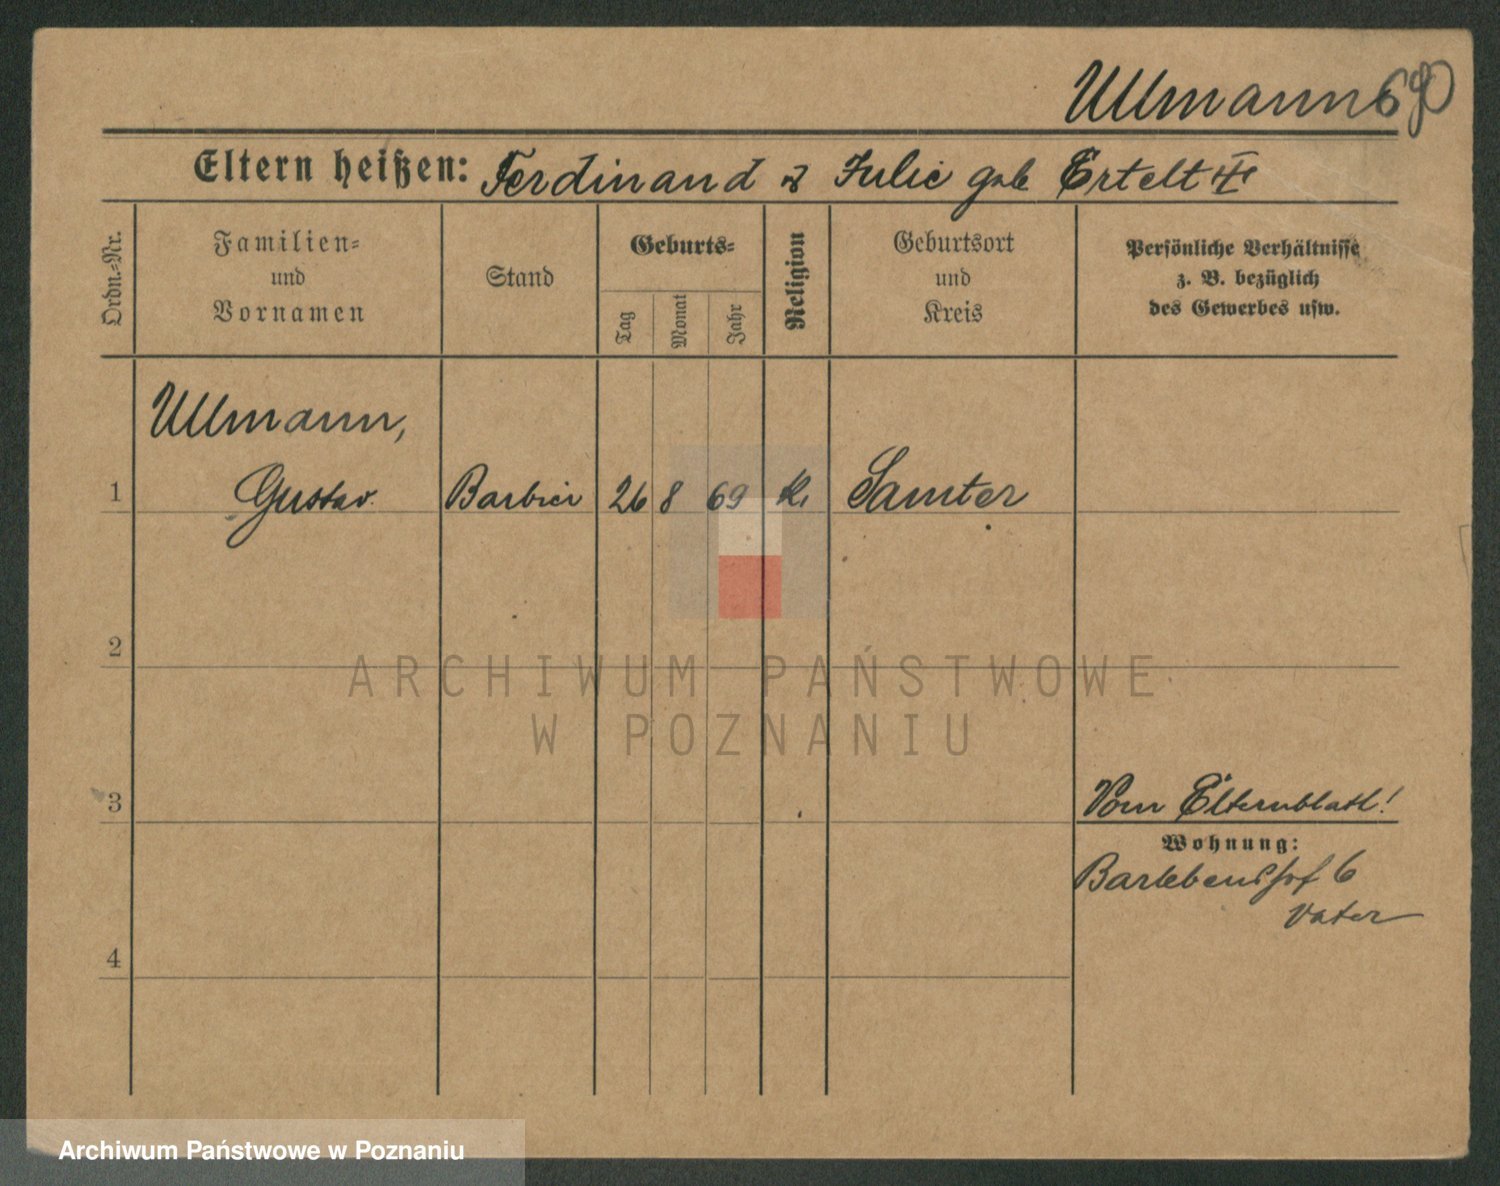 Ullmann 690
Eltern heißen: Ferdinand u Julie geb Ertelt
Ordn.-Nr.
Familien-
und
Vornamen
Stand
Geburts-
Tag
Monat
Jahr
Religion
Geburtsort
und
Kreis
Persönliche Verhältnisse
z. B. bezüglich
des Gewerbes usw.
Ullmann,
1 Gustav. Barbier 26 8 69 k. Samter
ARCHIWUM PAŃSTWOWE
W POZNANIU
2
3
Vom Elternblatt!
Wohnung:
Barlebenshof 6
Vater
4
Archiwum Państwowe w Poznaniu